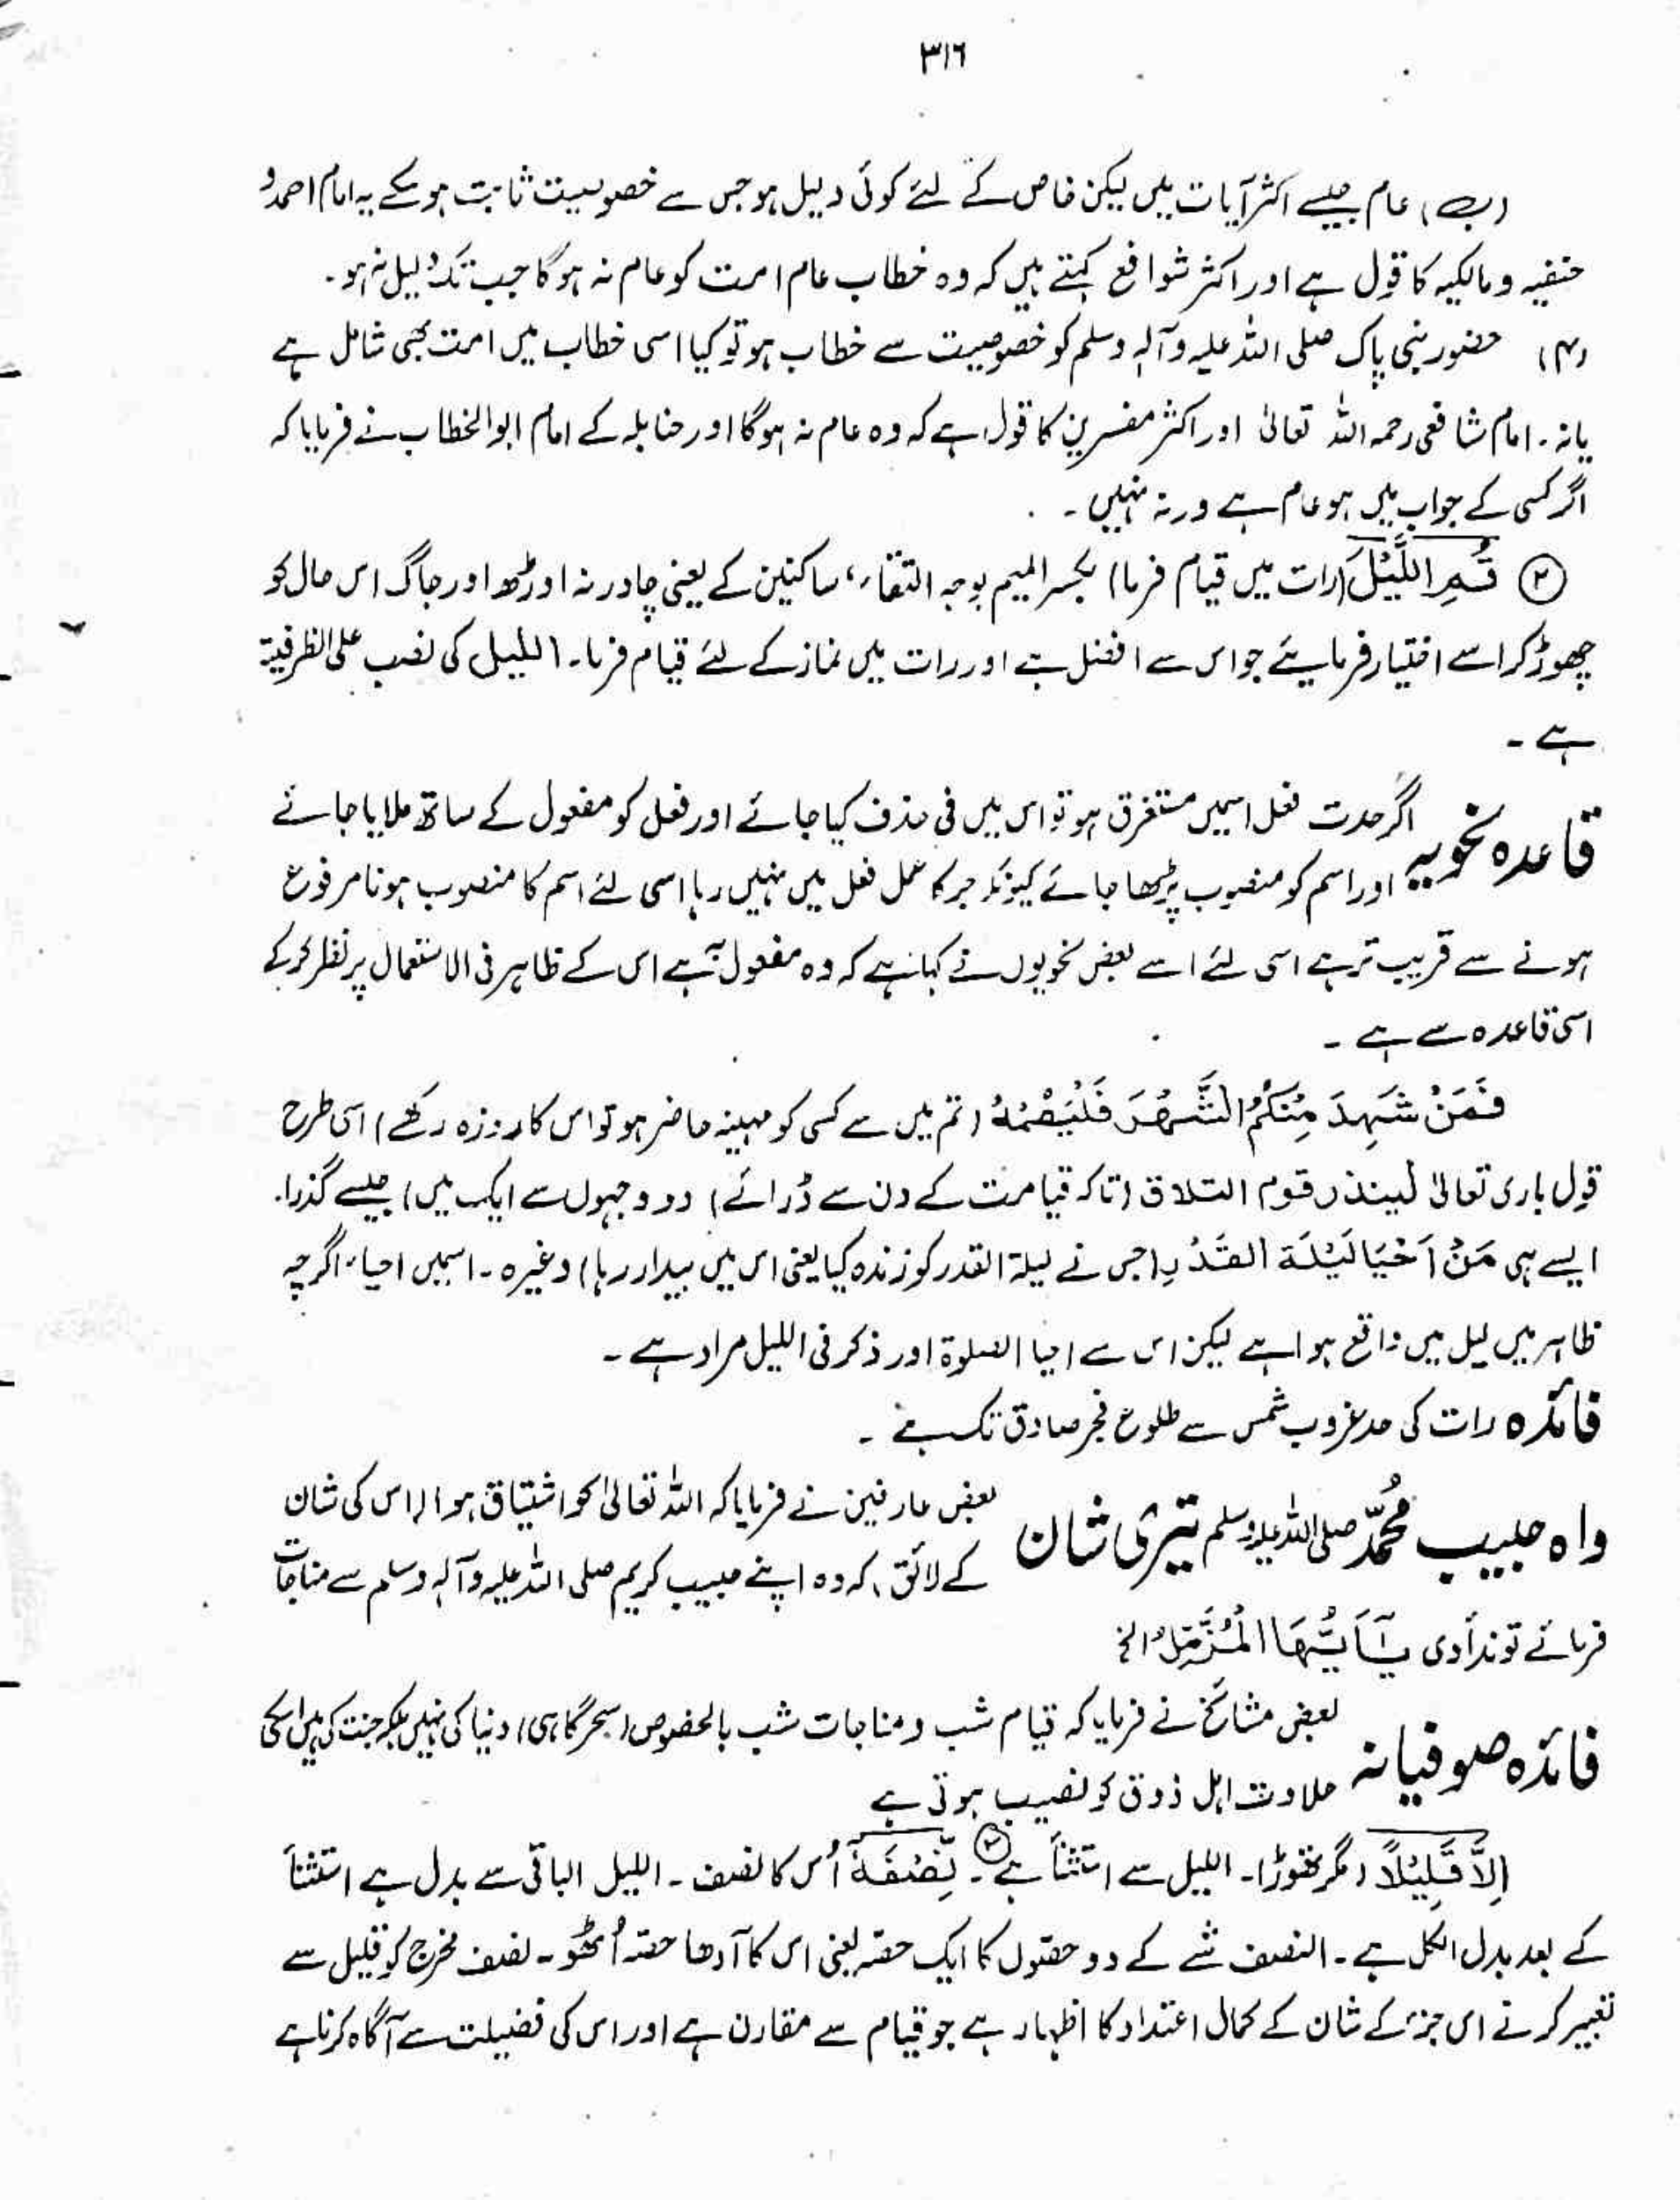 ۳۱۶
(ب) عام جیسے اکثر آیات میں لیکن خاص کے لئے کوئی دلیل ہو جس سے خصوصیت ثابت ہو سکے یہ امام احمد و
حنفیہ و مالکیہ کا قول ہے اور اکثر شوافع کہتے ہیں کہ وہ خطاب عام امت کو عام نہ ہو گا جب تک دلیل نہ ہو۔
(۴) حضور نبی پاک صلی اللہ علیہ وآلہٖ وسلم کو خصوصیت سے خطاب ہو تو کیا اسی خطاب میں امت بھی شامل ہے
یا نہ۔ امام شافعی رحمہ اللہ تعالیٰ اور اکثر مفسرین کا قول ہے کہ وہ عام نہ ہوگا اور حنابلہ کے امام ابوالخطاب نے فرمایا کہ
اگر کسی کے جواب میں ہو عام ہے ورنہ نہیں۔
② قُمِ اللَّیْلَ (رات میں قیام فرما) بکسر المیم بوجہ التقاء ساکنین کے یعنی چادر نہ اوڑھ اور جاگ اس حال کو
چھوڑ کر اسے اختیار فرمایئے جو اس سے افضل ہے اور رات میں نماز کے لئے قیام فرما۔ اللیل کی نصب علی الظرفیۃ
ہے۔
قاعدہ نحویہ اگر حدث فعل اسمیں مستغرق ہو تو اس میں فی حذف کیا جائے اور فعل کو مفعول کے ساتھ ملایا جائے
اور اسم کو منصوب پڑھا جائے کیونکہ جر کا عمل فعل میں نہیں رہا اسی لئے اسم کا منصوب ہونا مرفوع
ہونے سے قریب تر ہے اسی لئے اسے بعض نحویوں نے کہا ہے کہ وہ مفعول بہ ہے اس کے ظاہر فی الاستعمال پر نظر کر کے
اسی قاعدہ سے ہے۔
فَمَنْ شَہِدَ مِنْکُمُ الشَّہْرَ فَلْیَصُمْہُ (تم میں سے کسی کو مہینہ حاضر ہو تو اس کا روزہ رکھے) اسی طرح
قول باری تعالیٰ لینذر قوم التلاق (تاکہ قیامت کے دن سے ڈرائے) دو وجہوں سے ایک میں) جیسے گذرا۔
ایسے ہی مَنْ اَحْیَا لَیْلَۃ القَدْرِ (جس نے لیلۃ القدر کو زندہ کیا یعنی اس میں بیدار رہا) وغیرہ۔ اسمیں احیاء اگرچہ
ظاہر میں لیل میں واقع ہوا ہے لیکن اس سے احیا الصلوۃ اور ذکر فی اللیل مراد ہے۔
فائدہ رات کی حد غروب شمس سے طلوع فجر صادق تک ہے۔
واہ حبیب محمّد صلی اللہ علیہ وسلم تیری شان بعض عارفین نے فرمایا کہ اللہ تعالیٰ کو اشتیاق ہوا (اس کی شان
کے لائق) کہ وہ اپنے حبیب کریم صلی اللہ علیہ وآلہٖ وسلم سے مناجات
فرمائے تو ندا دی یٰۤاَیُّہَا الْمُزَّمِّلُ الخ
فائدہ صوفیانہ بعض مشائخ نے فرمایا کہ قیام شب و مناجات شب بالخصوص (سحرگاہی) دنیا کی نہیں بلکہ جنت کی ہیں اسکی
حلاوت اہل ذوق کو نصیب ہوتی ہے
اِلَّا قَلِیْلًا (مگر تھوڑا۔ اللیل سے استثنأ ہے ③۔ نِّصْفَہٗ اُس کا نصف۔ اللیل الباقی سے بدل ہے استثنأ
کے بعد بدل الکل ہے۔ النصف شے کے دو حصّوں کا ایک حصّہ یعنی اس کا آدھا حصّہ اُٹھو۔ نصف مخرج کو قلیل سے
تعبیر کرنے اس جزء کے شان کے کمال اعتداد کا اظہار ہے جو قیام سے مقارن ہے اور اس کی فضیلت سے آگاہ کرنا ہے